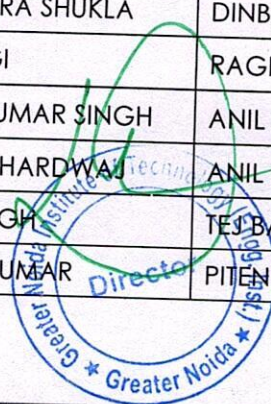 RA SHUKLA DINB
GI RAGH
UMAR SINGH ANIL
HARDWAJ ANIL
GH TEJ BA
UMAR PITEN
Greater Noida Institute of Technology (Engg Inst.)
Director
Greater Noida